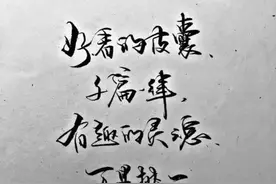 好看的皮囊、
千篇一律，
有趣的灵魂、
万里挑一